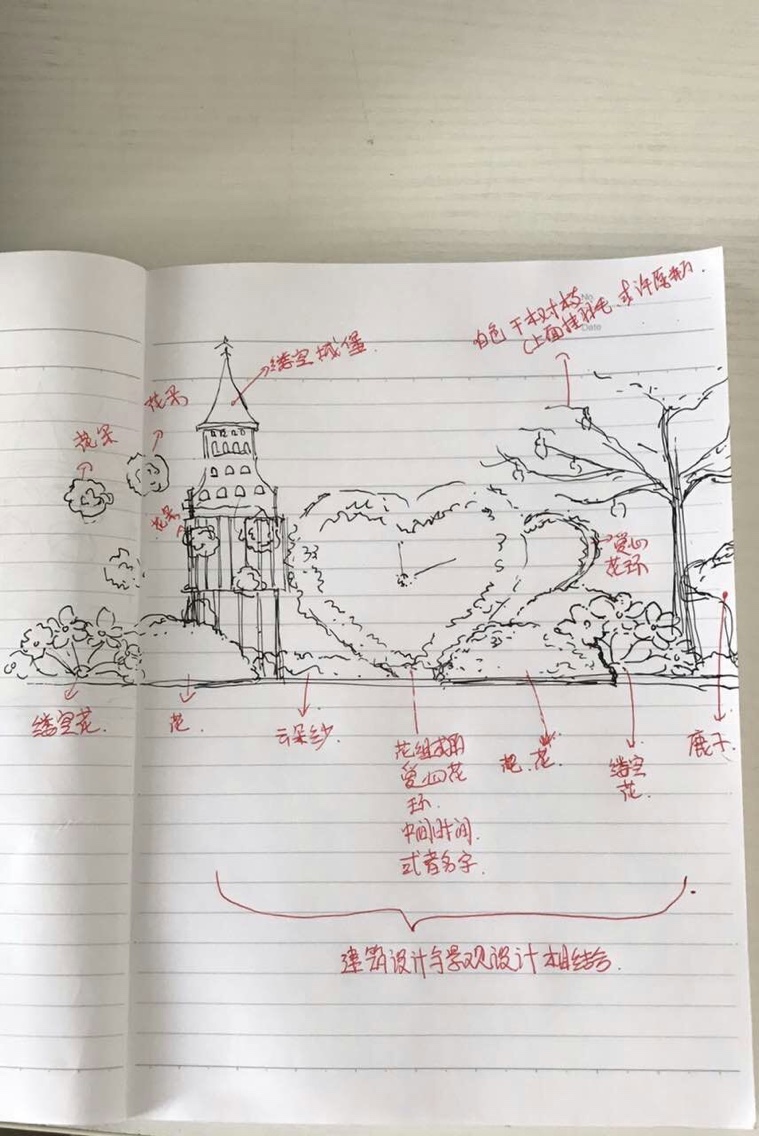 白色干树枝
(上面挂羽毛 或许愿瓶).
No
Date
镂空城堡
花朵
花朵
花朵
爱心
花环
镂空花.
花.
云朵纱.
花组成的
爱心花
环.
中间时间
或者名字.
花.
镂空
花.
鹿干.
建筑设计与景观设计相结合.